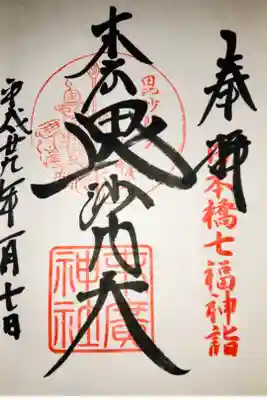 奉拝
日本橋七福神詣
末廣
毘沙門天
末廣神社
平成廿九年一月七日